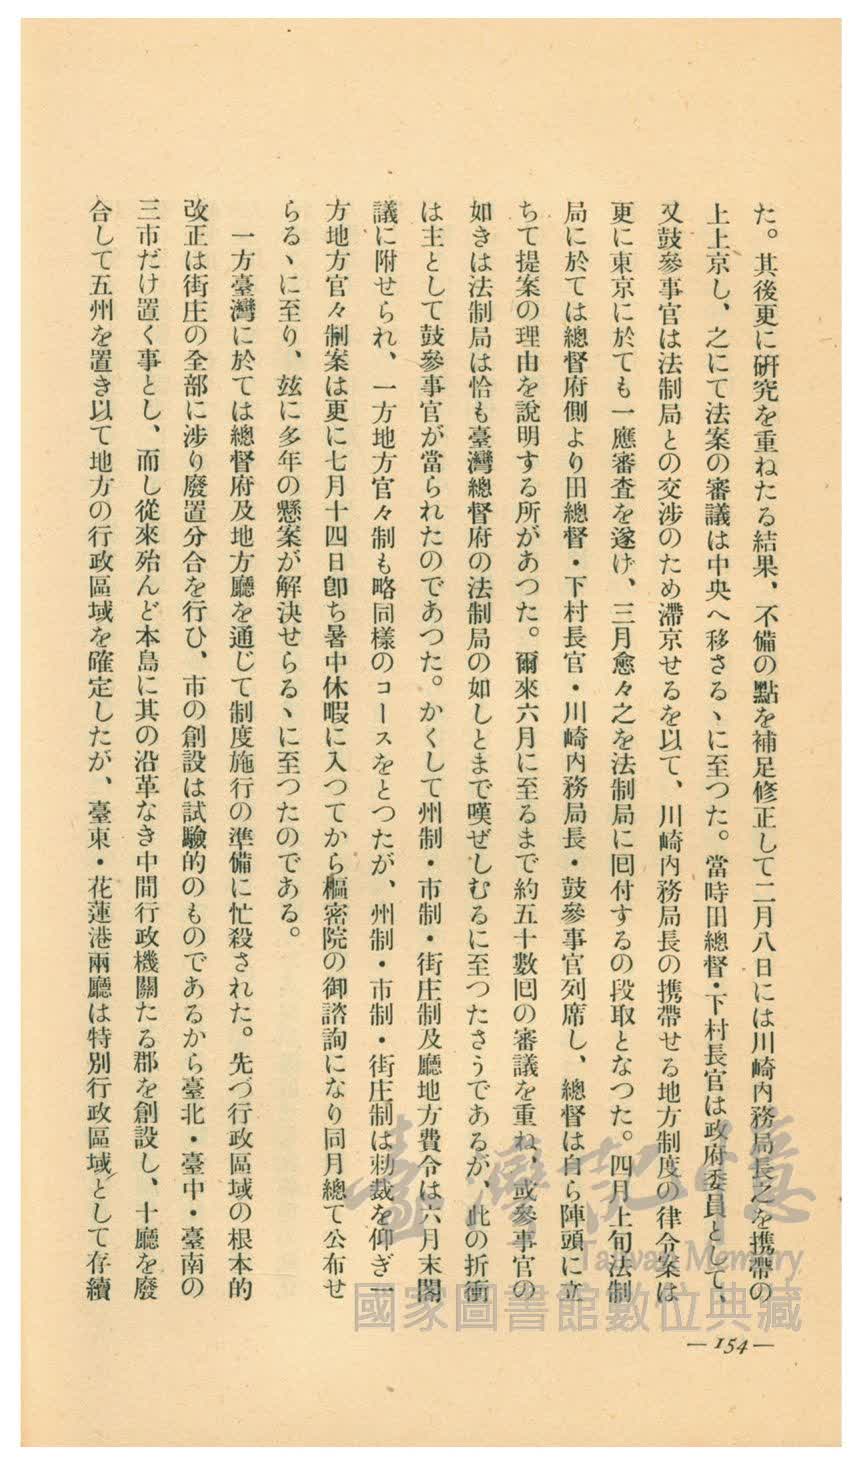 た。其後更に研究を重ねたる結果、不備の點を補足修正して二月八日には川崎內務局長之を携帶の
上上京し、之にて法案の審議は中央へ移さるゝに至つた。當時田總督・下村長官は政府委員として、
又鼓參事官は法制局との交涉のため滯京せるを以て、川崎內務局長の携帶せる地方制度の律令案は
更に東京に於ても一應審査を遂げ、三月愈々之を法制局に囘付するの段取となつた。四月上旬法制
局に於ては總督府側より田總督・下村長官・川崎內務局長・鼓參事官列席し、總督は自ら陣頭に立
ちて提案の理由を說明する所があつた。爾來六月に至るまで約五十數囘の審議を重ね、或參事官の
如きは法制局は恰も臺灣總督府の法制局の如しとまで嘆ぜしむるに至つたさうであるが、此の折衝
は主として鼓參事官が當られたのであつた。かくして州制・市制・街庄制及廳地方費令は六月末閣
議に附せられ、一方地方官々制も略同樣のコースをとつたが、州制・市制・街庄制は勅裁を仰ぎ一
方地方官々制案は更に七月十四日卽ち暑中休暇に入つてから樞密院の御諮詢になり同月總て公布せ
らるゝに至り、玆に多年の懸案が解決せらるゝに至つたのである。
一方臺灣に於ては總督府及地方廳を通じて制度施行の準備に忙殺された。先づ行政區域の根本的
改正は街庄の全部に涉り廢置分合を行ひ、市の創設は試驗的のものであるから臺北・臺中・臺南の
三市だけ置く事とし、而し從來殆んど本島に其の沿革なき中間行政機關たる郡を創設し、十廳を廢
合して五州を置き以て地方の行政區域を確定したが、臺東・花蓮港兩廳は特別行政區域として存續
臺灣記憶
Taiwan Memory
國家圖書館數位典藏
—154—